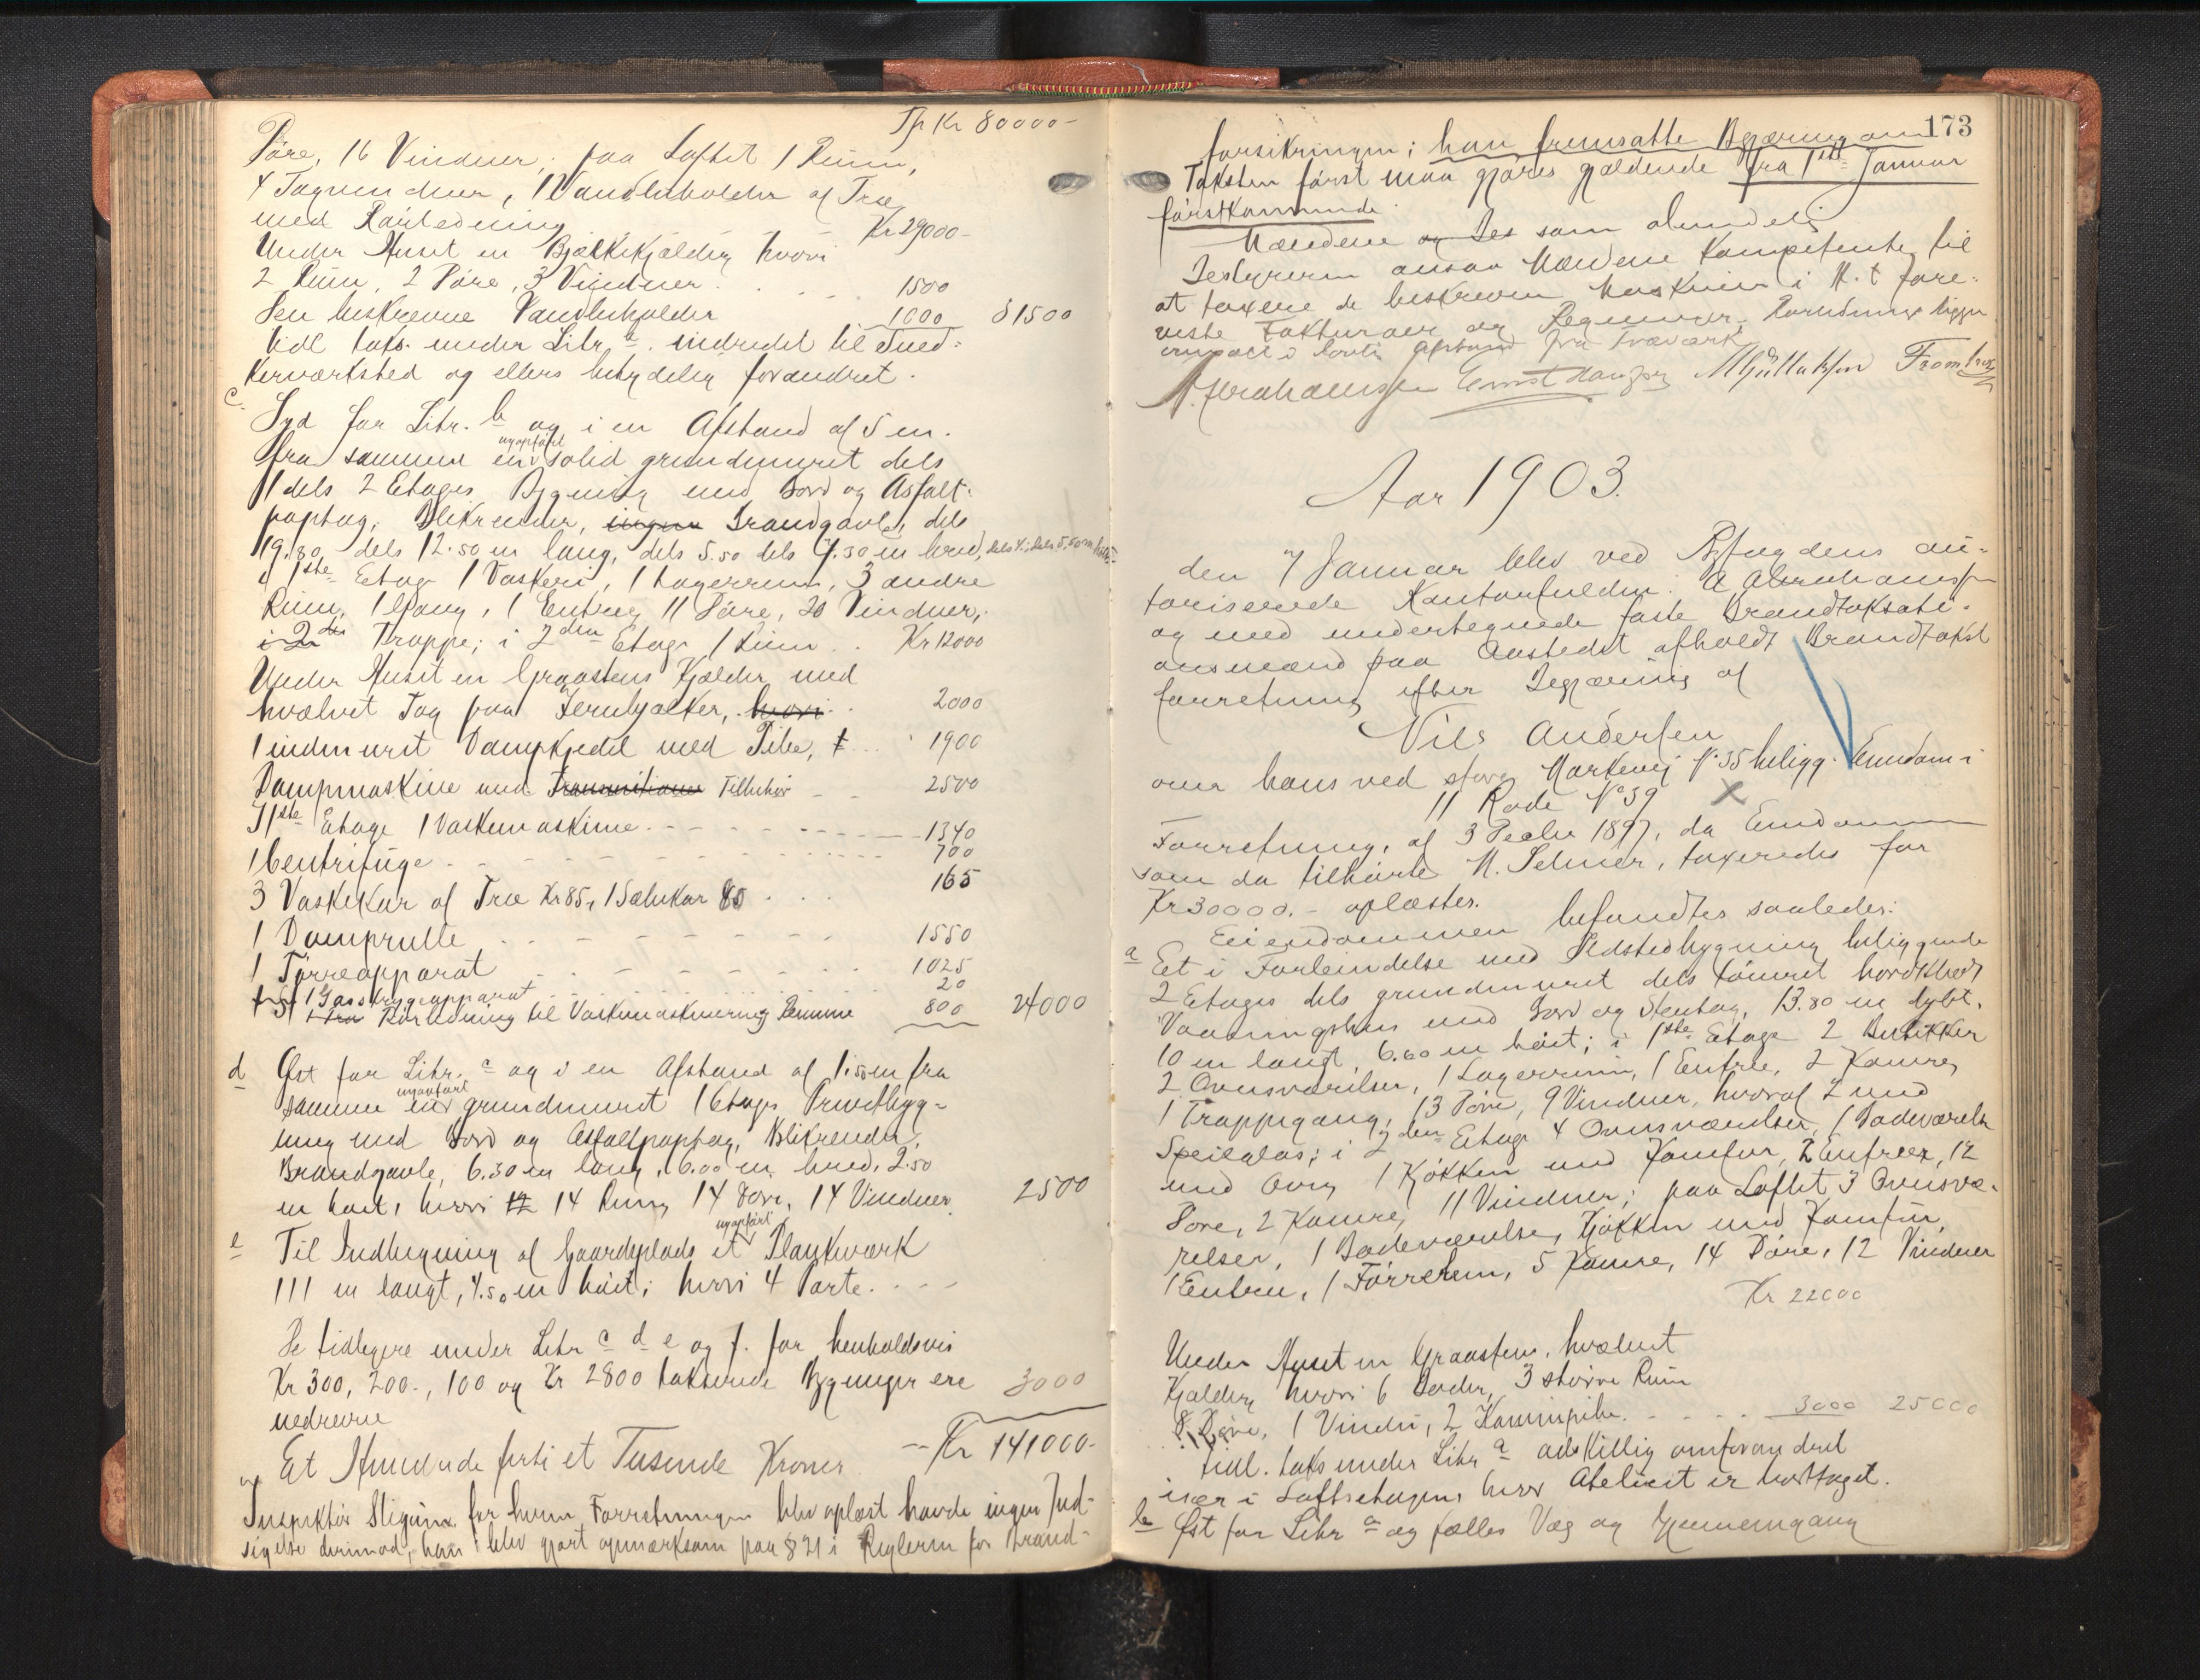 Tp Kr 80000-
Døre, 16 Vinduer; paa Loftet 1 Rum,
4 Tagvinduer, 1 Vandbeholder af Træ
med Rørledning Kr 29000-
Under Huset en Bjælkekjelder, hvori
2 Rum, 2 Døre, 3 Vinduer . . 1500
Den beskrevne Vandbeholder 1000 81500
Tidl. taks. under Litr. a. indredet til Sned-
kerværksted og ellers betydelig forandret.
c. Syd for Litr. b og i en Afstand af 5 m.
fra samme en nyopført solid grundmuret dels
1 dels 2 Etages Bygning med Bord og Asfalt-
paptag, Blikrender, ingen Brandgavle, dels
19.80 dels 12.50 m lang, dels 5.50 dels 9.30 m bred,
i 1ste Etage 1 Vaskeri, 1 Lagerrum, 3 andre
Rum, 1 Gang, 1 Entree, 11 Døre, 20 Vinduer,
i 2den Trappe; i 2den Etage 1 Rum . . Kr 12000
Under Huset en Graastens Kjelder med
hvælvet Tag paa Jernbjælker, hvori . . 2000
1 indmuret Dampkjedel med Pibe, 1 . . . 1900
Dampmaskine med Transmitioner Tilbehør - - 2500
I 1ste Etage 1 Vaskemaskine - - - 1340
1 Centrifuge - - - 700
3 Vaskekar af Træ Kr 85, 1 Sæbekar 80 . . . 165
1 Damprulle - - - 1550
1 Tørreapparat - - - 1025
1 Gasstrygeapparat . . . 20
Rørledning til Vaskemaskinering Rummene 800 24000
d Øst for Litr. c og i en Afstand af 1.50 m fra
samme en nyopført grundmuret 1 Etages Privetbyg-
ning med Bord og Asfaltpaptag, Blikrender,
Brandgavle, 6.30 m lang, 6.00 m bred, 2.50
m høit, hvori 12 14 Rum, 14 Døre, 14 Vinduer. 2500
e Til Indhegning af Gaardsplads et nyopført Plankeværk
111 m langt, 4.50 m høit; hvori 4 Porte. - - -
De tidligere under Litr c d e og f. for henholdsvis
Kr 300, 200-, 100 og Kr 2800 takserede Bygninger ere 3000
nedrevne
Et Hundrede førti et Tusende Kroner -- Kr 141000-
Inspektør for hvem Forretningen blev oplæst havde ingen Ind-
sigelse derimod, han blev gjort opmærksom paa § 21 i Reglerne for Brand-
173
forsikringen; han fremsatte Begjæring om
Taksten først maa gjøres gjældende fra 1ste Januar
førstkommende.
Mændene og Bes som almindelig
Bestyreren ansaa Mændene kompetente til
at taxere de beskrevne Maskiner i H. t. fore-
viste Fakturaer og Regninger. ligger
i Afstand fra Træværk
A. Abrahamsen Ernst
Aar 1903.
den 7 Januar blev ved Byfogdens au-
toriserede Kontorfuldm. A Abrahamsen
og med undertegnede faste Brandtaksati-
onsmænd paa Aastedet afholdt Brandtakst
forretning efter Begjæring af
Nils Andersen
over hans ved store Markevei No 35 beligg. Eiendom i
11 Rode No 39 X
Forretning, af 3 Decbr 1897, da Eiendommen
som da tilhørte N. Selmer, taxeredes for
Kr 30000.- oplæstes.
Eiendommen befandtes saaledes:
a Et i Forbindelse med Ildstedbygning beliggende
2 Etages dels grundmuret dels tømret bordklædt
Vaaningshus med Bord og Stentag, 13.80 m dybt,
10 m langt, 6.60 m høit; i 1ste Etage 2 Butikker
2 Ovnsværelser, 1 Lagerrum, 1 Entree, 2 Kamre,
1 Trappegang, 13 Døre, 9 Vinduer, hvoraf 2 med
Speilglas; i 2den Etage 4 Ovnsværelser, 1 Badeværelse
med Ovn, 1 Kjøkken med Komfur, 2 Entreer, 12
Døre, 2 Kamre, 11 Vinduer; paa Loftet 3 Ovnsvæ-
relser, 1 Badeværelse, Kjøkken med Komfur,
1 Entree, 1 Tørrerum, 5 Kamre, 14 Døre, 12 Vinduer
Kr 22000
Under Huset en Graastens, hvælvet
Kjelder, hvori 6 Boder, 3 større Rum
8 Døre, 1 Vindu, 2 Kaminpiber. - - - 3000 25000
Tidl. taks under Litr a adskillig omforandret
især i Loftsetagen, hvor Atelieret er borttaget.
b Øst for Litr a og fælles Væg og Gjennemgang